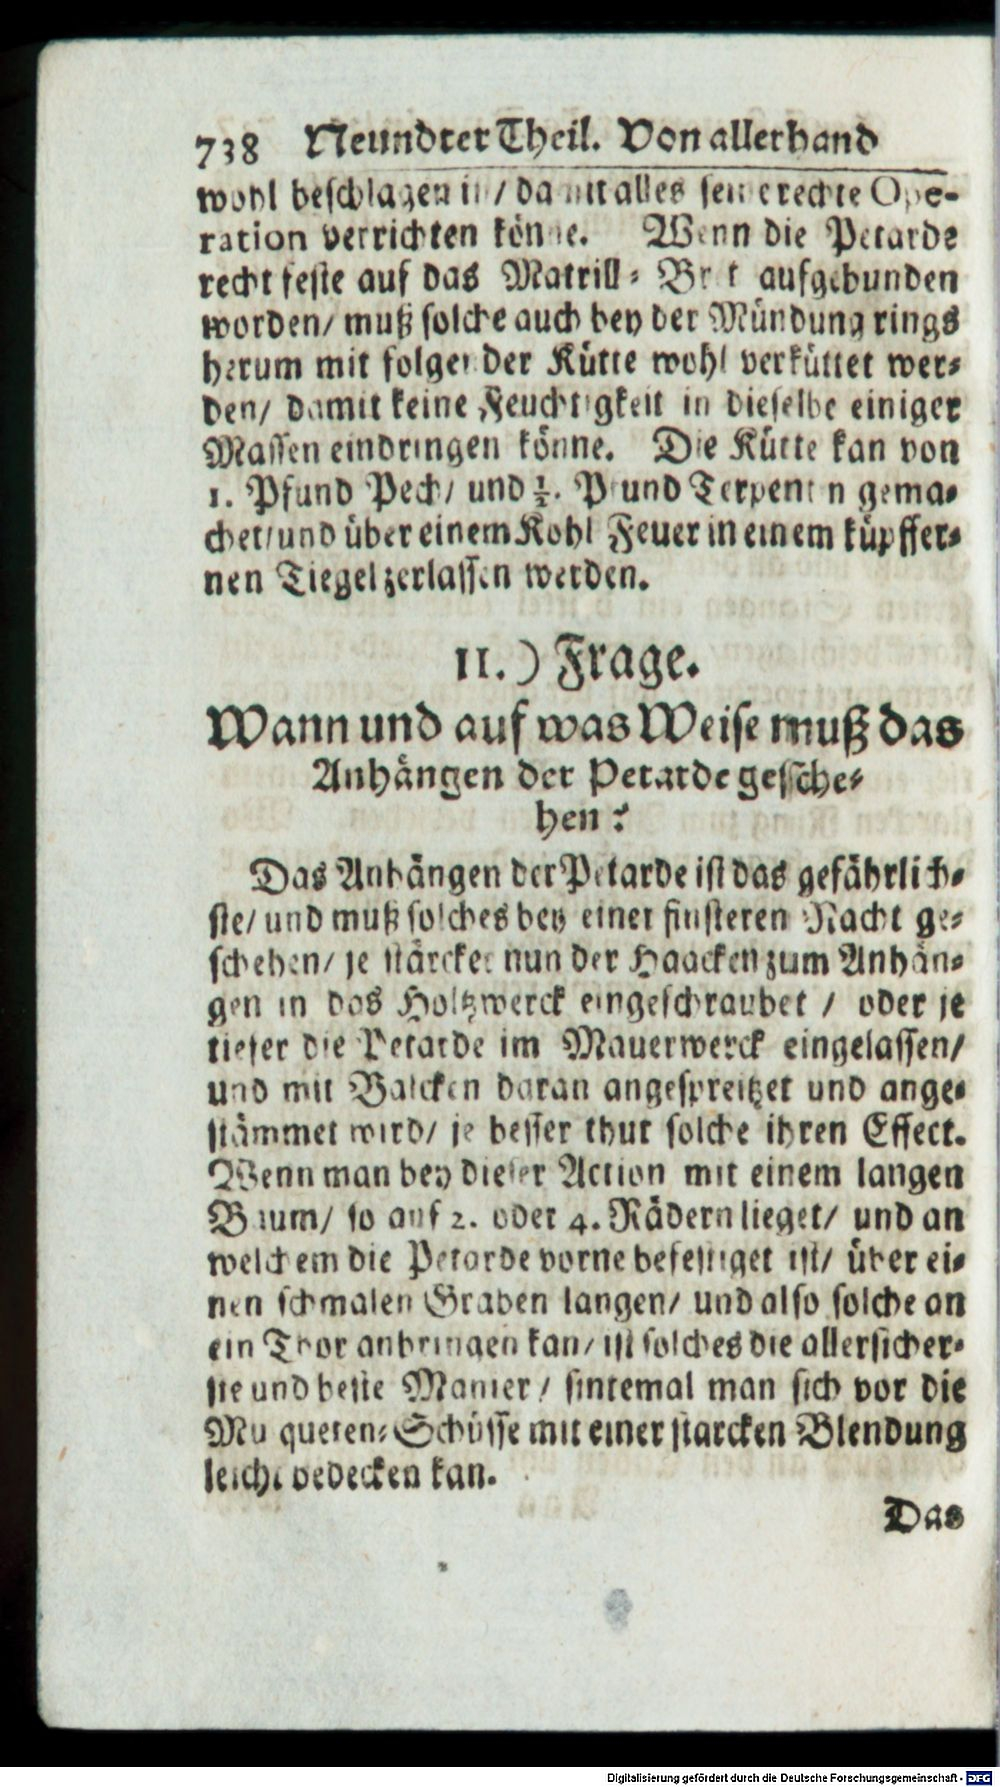 738 Neundter Theil. Von allerhand
wohl beschlagen in / damit alles seine rechte Ope-
ration verrichten könne. Wenn die Petarde
recht feste auf das Matrill- Bret aufgebunden
worden/ muß solche auch bey der Mündung rings
herum mit folgender Kütte wohl verküttet wer-
den/ damit keine Feuchtigkeit in dieselbe einiger
Massen eindringen könne. Die Kütte kan von
1. Pfund Pech/ und ½. Pfund Terpentin gema-
chet/und über einem Kohl Feuer in einem küpffer-
nen Tiegel zerlassen werden.
11.) Frage.
Wann und auf was Weise muß das
Anhängen der Petarde gesche-
hen?
Das Anhängen der Petarde ist das gefährlich-
ste/ und muß solches bey einer finsteren Nacht ge-
schehen/ je stärcker nun der Haacken zum Anhän-
gen in das Holtzwerck eingeschraubet / oder je
tiefer die Petarde im Mauerwerck eingelassen/
und mit Balcken daran angespreitzet und ange-
stämmet wird/ je besser thut solche ihren Effect.
Wenn man bey dieser Action mit einem langen
Baum/ so auf 2. oder 4. Rädern lieget/ und an
welchem die Petarde vorne befestiget ist/ über ei-
nen schmalen Graben langen/ und also solche an
ein Thor anbringen kan/ ist solches die allersicher-
ste und beste Manier/ sintemal man sich vor die
Musqueten-Schüsse mit einer starcken Blendung
leicht bedecken kan.
Das
Digitalisierung gefördert durch die Deutsche Forschungsgemeinschaft - DFG